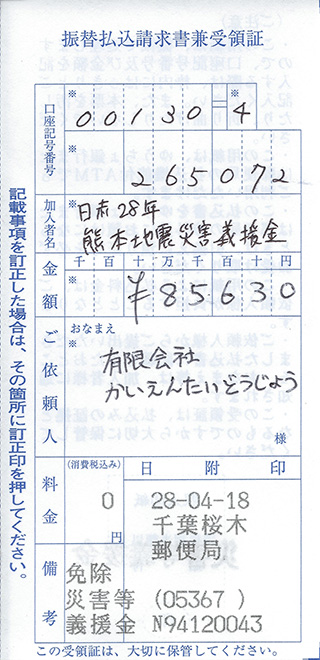 振替払込請求書兼受領証
口座記号番号
※ 00130=4
※ 265072
加入者名
※ 日赤28年
熊本地震災害義援金
金額
千百十万千百十円
※ ¥85630
ご依頼人
おなまえ
有限会社
かいえんたいどうじょう
様
料金
(消費税込み)
0
円
日附印
28-04-18
千葉桜木
郵便局
備考
免除
災害等 (05367 )
義援金 N94120043
記載事項を訂正した場合は、その箇所に訂正印を押してください。
この受領証は、大切に保管してください。